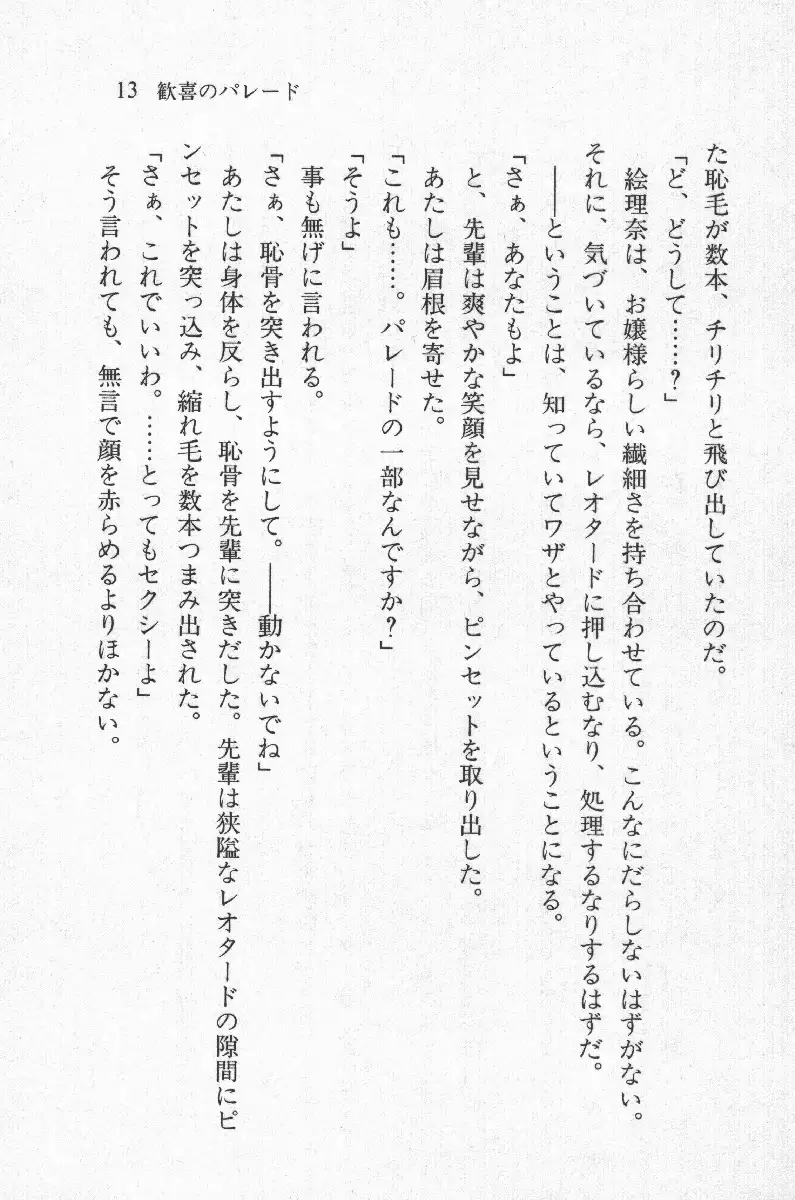 13 歓喜のパレード
た恥毛が数本、チリチリと飛び出していたのだ。
「ど、どうして……?」
絵理奈は、お嬢様らしい繊細さを持ち合わせている。こんなにだらしないはずがない。
それに、気づいているなら、レオタードに押し込むなり、処理するなりするはずだ。
――ということは、知っていてワザとやっているということになる。
「さぁ、あなたもよ」
と、先輩は爽やかな笑顔を見せながら、ピンセットを取り出した。
あたしは眉根を寄せた。
「これも……。パレードの一部なんですか?」
「そうよ」
事も無げに言われる。
「さぁ、恥骨を突き出すようにして。――動かないでね」
あたしは身体を反らし、恥骨を先輩に突きだした。先輩は狭隘なレオタードの隙間にピ
ンセットを突っ込み、縮れ毛を数本つまみ出された。
「さぁ、これでいいわ。……とってもセクシーよ」
そう言われても、無言で顔を赤らめるよりほかない。